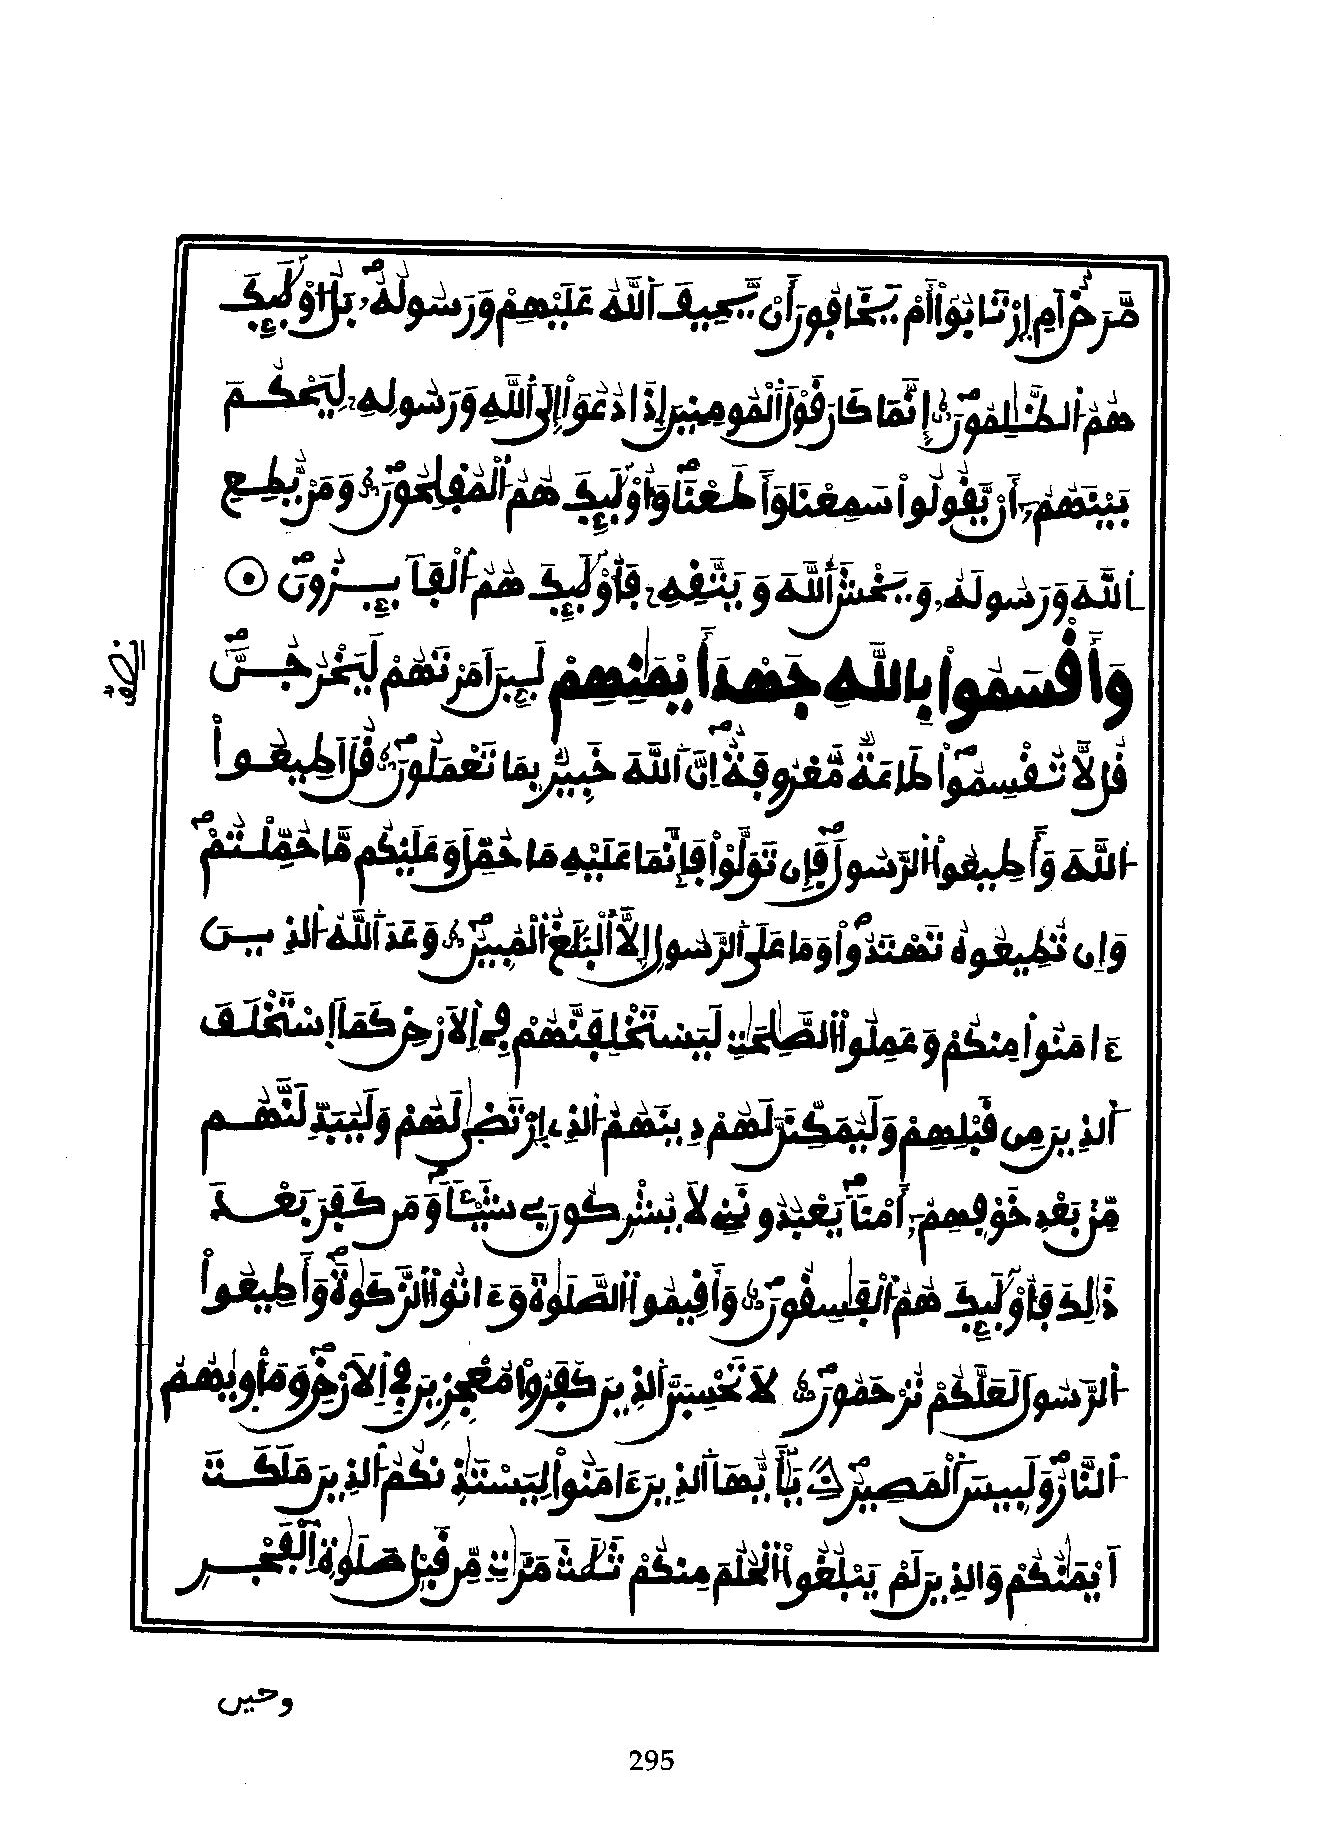 مَّرَضٌ اَمِ اِرْتَابُوٓاْ أَمْ يَخَافُونَ أَنْ يَّحِيفَ اَللَّهُ عَلَيْهِمْ وَرَسُولُهُۥ بَلُ اوْلَٰٓئِكَ
هُمُ اُلظَّٰلِمُونَ إِنَّمَا كَانَ قَوْلَ اَلْمُومِنِينَ إِذَا دُعُوٓاْ إِلَى اَللَّهِ وَرَسُولِهِۦ لِيَحْكُمَ
بَيْنَهُمُۥٓ أَنْ يَّقُولُواْ سَمِعْنَا وَأَطَعْنَا وَأُوْلَٰٓئِكَ هُمُ اُلْمُفْلِحُونَ وَمَنْ يُّطِعِ
اِللَّهَ وَرَسُولَهُۥ وَيَخْشَ اَللَّهَ وَيَتَّقِهِۦ فَأُوْلَٰٓئِكَ هُمُ اُلْفَآئِزُونَ
وَأَقْسَمُواْ بِاللَّهِ جَهْدَ أَيْمَٰنِهِمْ لَئِنَ اَمَرْتَهُمْ لَيَخْرُجُنَّ
قُل لَّا تُقْسِمُواْ طَاعَةٌ مَّعْرُوفَةٌ اِنَّ اَللَّهَ خَبِيرٌۢ بِمَا تَعْمَلُونَ قُلَ اَطِيعُواْ
اُللَّهَ وَأَطِيعُواْ اُلرَّسُولَ فَإِن تَوَلَّوْاْ فَإِنَّمَا عَلَيْهِ مَا حُمِّلَ وَعَلَيْكُم مَّا حُمِّلْتُمْ
وَإِن تُطِيعُوهُ تَهْتَدُواْ وَمَا عَلَى اَلرَّسُولِ إِلَّا اَلْبَلَٰغُ اُلْمُبِينُ وَعَدَ اَللَّهُ اُلذِينَ
ءَامَنُواْ مِنكُمْ وَعَمِلُواْ اُلصَّٰلِحَٰتِ لَيَسْتَخْلِفَنَّهُمْ فِي اِلَارْضِ كَمَا اَسْتَخْلَفَ
اَلذِينَ مِن قَبْلِهِمْ وَلَيُمَكِّنَنَّ لَهُمْ دِينَهُمُ اُلذِي اِرْتَضَىٰ لَهُمْ وَلَيُبَدِّلَنَّهُم
مِّنۢ بَعْدِ خَوْفِهِمُۥٓ أَمْناٗ يَعْبُدُونَنِي لَا يُشْرِكُونَ بِي شَيْـٔاٗ وَمَن كَفَرَ بَعْدَ
ذَٰلِكَ فَأُوْلَٰٓئِكَ هُمُ اُلْفَٰسِقُونَ وَأَقِيمُواْ اُلصَّلَوٰةَ وَءَاتُواْ اُلزَّكَوٰةَ وَأَطِيعُواْ
اُلرَّسُولَ لَعَلَّكُمْ تُرْحَمُونَ لَا تَحْسِبَنَّ اَلذِينَ كَفَرُواْ مُعْجِزِينَ فِي اِلَارْضِ وَمَأْوِيٰهُمُ
اُلنَّارُ وَلَبِيسَ اَلْمَصِيرُ يَٰٓأَيُّهَا اَلذِينَ ءَامَنُواْ لِيَسْتَٰذِنكُمُ اُلذِينَ مَلَكَتَ
اَيْمَٰنُكُمْ وَالذِينَ لَمْ يَبْلُغُواْ اُلْحُلُمَ مِنكُمْ ثَلَٰثَ مَرَّٰتٖ مِّن قَبْلِ صَلَوٰةِ اِلْفَجْرِ
وحين
295